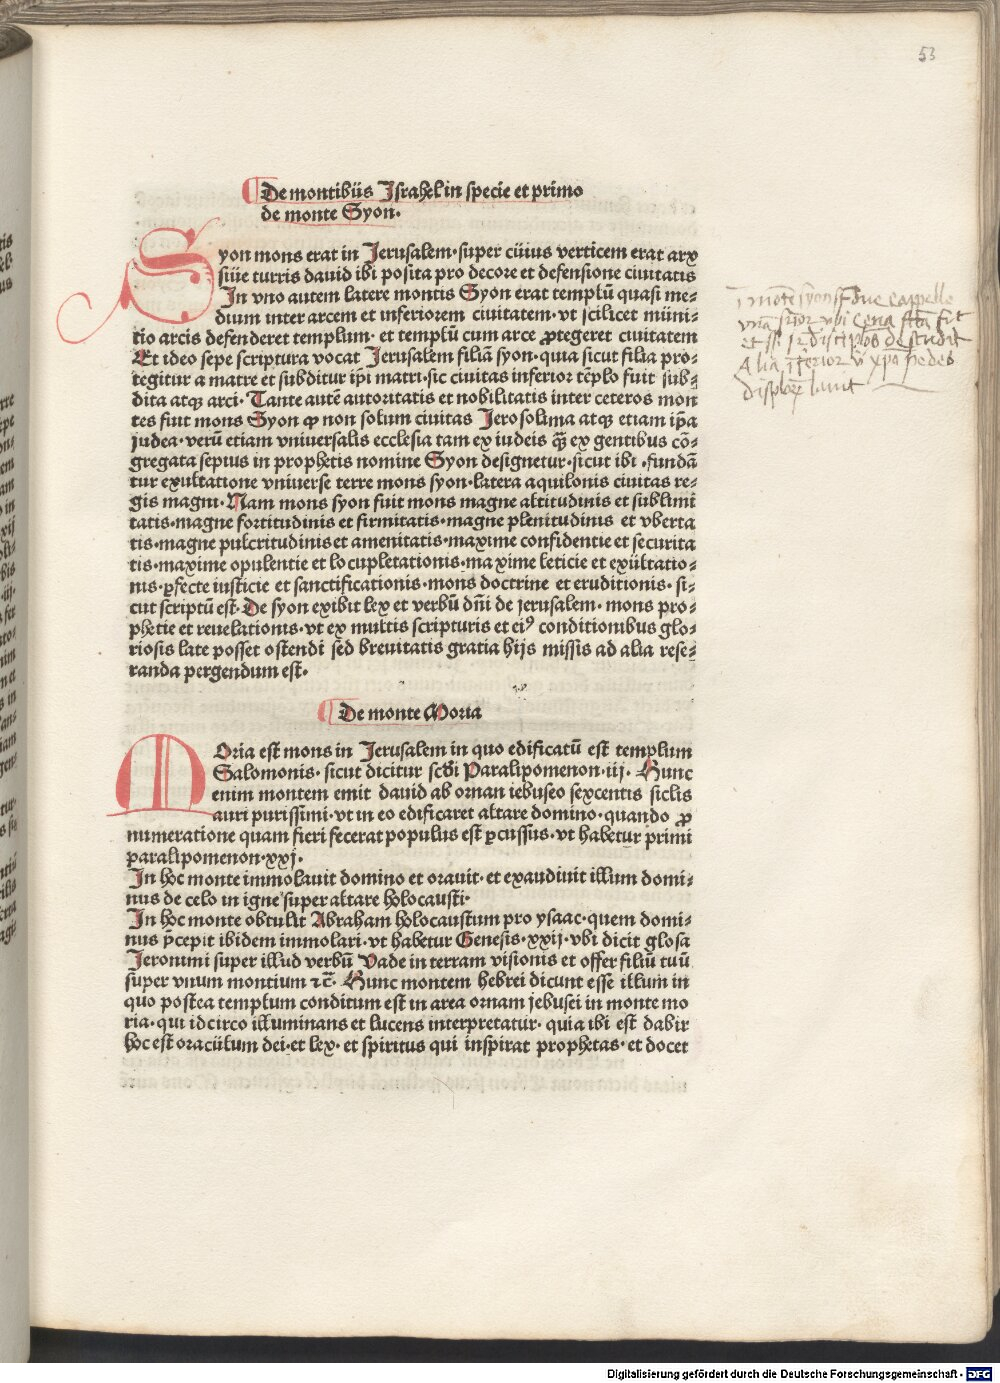 53
De montibus Israhel in specie et primo
de monte Syon.
Syon mons erat in Jerusalem·super cuius verticem erat arx
siue turris dauid ibi posita pro decore et defensione ciuitatis
In vno autem latere montis Syon erat templū quasi me-
dium inter arcem et inferiorem ciuitatem·vt scilicet muni-
tio arcis defenderet templum·et templū cum arce ꝓtegeret ciuitatem
Et ideo sepe scriptura vocat Jerusalem filiā syon·quia sicut filia pro-
tegitur a matre et subditur ip̄i matri·sic ciuitas inferior tēplo fuit sub-
dita atqꝫ arci·Tante autē autoritatis et nobilitatis inter ceteros mon
tes fuit mons Syon ꝙ non solum ciuitas Jerosolima atqꝫ etiam ip̄a
judea·verū etiam vniuersalis ecclesia tam ex iudeis q̄ꝫ ex gentibus cō-
gregata sepius in prophetis nomine Syon designetur·sicut ibi·fundā
tur exultatione vniuerse terre mons syon·latera aquilonis ciuitas re-
gis magni·Nam mons syon fuit mons magne altitudinis et sublimi
tatis·magne fortitudinis et firmitatis·magne plenitudinis et vberta
tis·magne pulcritudinis et amenitatis·maxime confidentie et securita
tis·maxime opulentie et locupletationis·maxime leticie et exultatio-
nis·ꝑfecte iusticie et sanctificationis·mons doctrine et eruditionis·si-
cut scriptū est·De syon exibit lex et verbū dn̄i de jerusalem·mons pro-
phetie et reuelationis·vt ex multis scripturis et eiꝰ conditionibus glo-
riosis late posset ostendi sed breuitatis gratia hijs missis ad alia rese-
randa pergendum est.
In mōte syon sūt due cappelle
De monte Moria
MOria est mons in Jerusalem in quo edificatū est templum
Salomonis·sicut dicitur scd̄i Paralipomenon·iij·Hunc
enim montem emit dauid ab ornan iebuseo sexcentis siclis
auri purissimi·vt in eo edificaret altare domino·quando ꝓ
numeratione quam fieri fecerat populus est ꝑcussus·vt habetur primi
paralipomenon·xxj.
In hoc monte immolauit domino et orauit·et exaudiuit illum domi-
nus de celo in igne super altare holocausti·
In hoc monte obtulit Abraham holocaustum pro ysaac·quem domi-
nus p̄cepit ibidem immolari·vt habetur Genesis·xxij·vbi dicit glosa
Jeronimi super illud verbū Vade in terram visionis et offer filiū tuū
super vnum montium ⁊c̄·Hunc montem hebrei dicunt esse illum in
quo postea templum conditum est in area ornam jebusei in monte mo
ria·qui idcirco illuminans et lucens interpretatur·quia ibi est dabir
hoc est oraculum dei·et lex·et spiritus qui inspirat prophetas·et docet
Digitalisierung gefördert durch die Deutsche Forschungsgemeinschaft - DFG